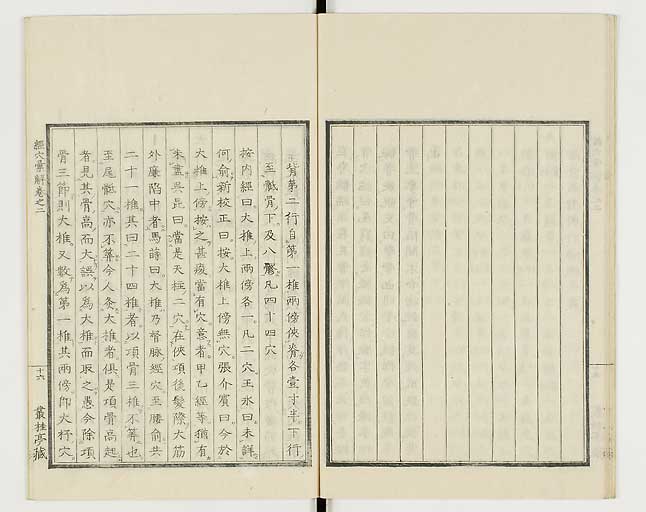 背第二行自第一椎兩傍俠脊各壹寸半下行
至骶骨下及八髎凡四十四穴
按內經曰大椎上兩傍各一凡二穴王冰曰未詳
何俞新校正曰按大椎上傍無穴張介賓曰今於
大椎上傍按之甚痠當有穴意者甲乙經等猶有
未盡吳昆曰當是天柱二穴在俠項後髮際大筋
外廉陷中者馬蒔曰大椎乃督脉經穴至腰俞共
二十一椎其曰二十四椎者以項骨三椎不筭也
至尾骶穴亦不筭今人灸大椎者俱是項骨高起
者見其骨高而大誤以爲大椎而取之愚今除項
骨三節則大椎又數爲第一椎其兩傍卽大杼穴
經穴彙解卷之二
十六
叢桂亭藏